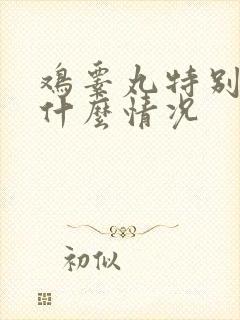 鸡睾丸特别
什麼情况
初似